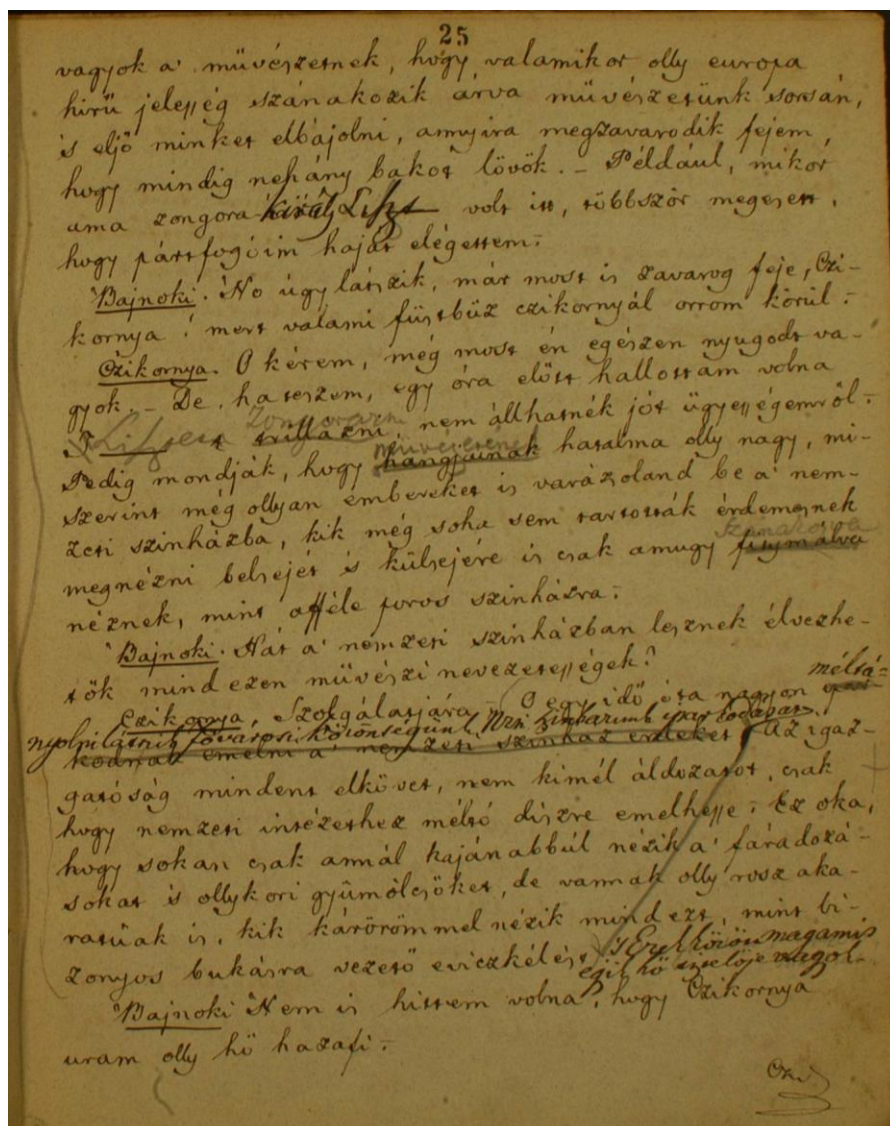 25
vagyok a' művészetnek, hogy valamikor olly europa
hirű jelesség szánakozik árva művészetünk sorsán,
's eljő minket elbájolni, annyira megzavarodik fejem,
hogy mindig nehány bakot lövök. – Például, mikor
ama zongora király Liszt volt itt, többször megesett,
hogy pártfogóim haját elégettem. –
Bajnoki. No úgy látszik, már most is zavarog feje, Czi-
kornya! mert valami füstbűz czikornyál orrom körül. –
Czikornya. O kérem, még most én egészen nyugodt va-
gyok. – De, ha teszem, egy óra előtt hallottam volna
Lisztet zongorázni trillázni, nem állhatnék jót ügyességemről. –
művészetének
Pedig mondják, hogy hangjainak hatalma olly nagy, mi-
szerint még ollyan embereket is varázsoland be a' nem-
zeti szinházba, kik még soha sem tartották érdemesnek
megnézni belsejét 's külsejére is csak amugy fitymálva
néznek, mint afféle poros szinházra. –
Bajnoki. Hát a' nemzeti szinházban lesznek élvezhe-
tők mind ezen művészi nevezetességek?
Czikornya. Szolgálatjára. – O egy idő óta nagyon méltá-
nyolni látszik fővárosi közönségünk Nzti Szinházunk
kodnak emelni a' nemzeti szinház érdekét. Az igaz-
gatóság mindent elkövet, nem kimél áldozatot, csak
hogy nemzeti intézethez méltó díszre emelhesse. Ez oka,
hogy sokan csak annál kajánabbúl nézik a' fáradozá-
sokat 's ollykori gyümölcsöket, de vannak olly rosz aka-
ratúak is, kik kárörömmel nézik mind ezt, mint bi-
zonyos bukásra vezető eviczkélést. 's Ezek között magam is
egy hő vagyok
Bajnoki Nem is hittem volna, hogy Czikornya
uram olly hő hazafi. –
Czi